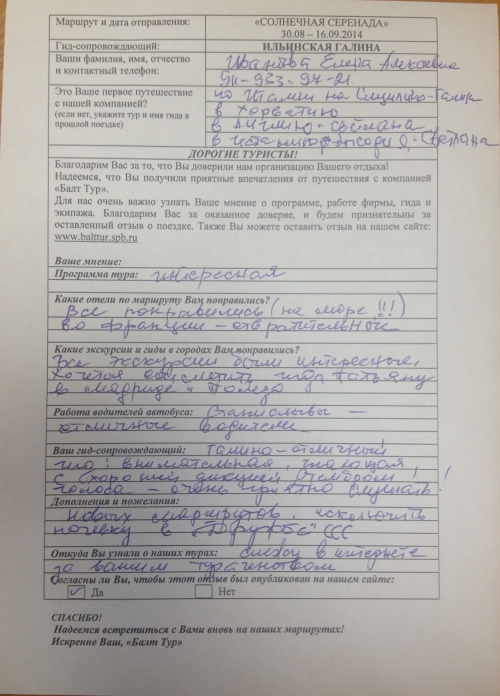 Маршрут и дата отправления:
«СОЛНЕЧНАЯ СЕРЕНАДА»
30.08 – 16.09.2014
Гид-сопровождающий:
ИЛЬИНСКАЯ ГАЛИНА
Ваши фамилия, имя, отчество
и контактный телефон:
Елена Алексеевна
911-933-97-21
Это Ваше первое путешествие
с нашей компанией?
(если нет, укажите тур и имя гида в
прошлой поездке)
из Италии на Сицилию-Галина
в Хорватию
в Англию - Светлана
в Светлана
ДОРОГИЕ ТУРИСТЫ!
Благодарим Вас за то, что Вы доверили нам организацию Вашего отдыха!
Надеемся, что Вы получили приятные впечатления от путешествия с компанией
«Балт Тур».
Для нас очень важно узнать Ваше мнение о программе, работе фирмы, гида и
экипажа. Благодарим Вас за оказанное доверие, и будем признательны за
оставленный отзыв о поездке. Также Вы можете оставить отзыв на нашем сайте:
www.balttur.spb.ru
Ваше мнение:
Программа тура: интересная
Какие отели по маршруту Вам понравились?
Все понравились (на море !!!)
во Франции – отвратительные
Какие экскурсии и гиды в городах Вам понравились?
Все экскурсии были интересные,
хочется отметить гида Татьяну
в Мадриде и Толедо
Работа водителей автобуса: Станиславы –
отличные водители
Ваш гид-сопровождающий: Галина – отличный
гид: внимательная, знающая,
с хорошей дикцией и тембром
голоса – очень приятно слушать!
Дополнения и пожелания:
Новых маршрутов, исключить
ночевку в "Дружбе" (((
Откуда Вы узнали о наших турах: слежу в интернете
за вашим турагенством
Согласны ли Вы, чтобы этот отзыв был опубликован на нашем сайте:
✓ Да
Нет
СПАСИБО!
Надеемся встретиться с Вами вновь на наших маршрутах!
Искренне Ваш, «Балт Тур»